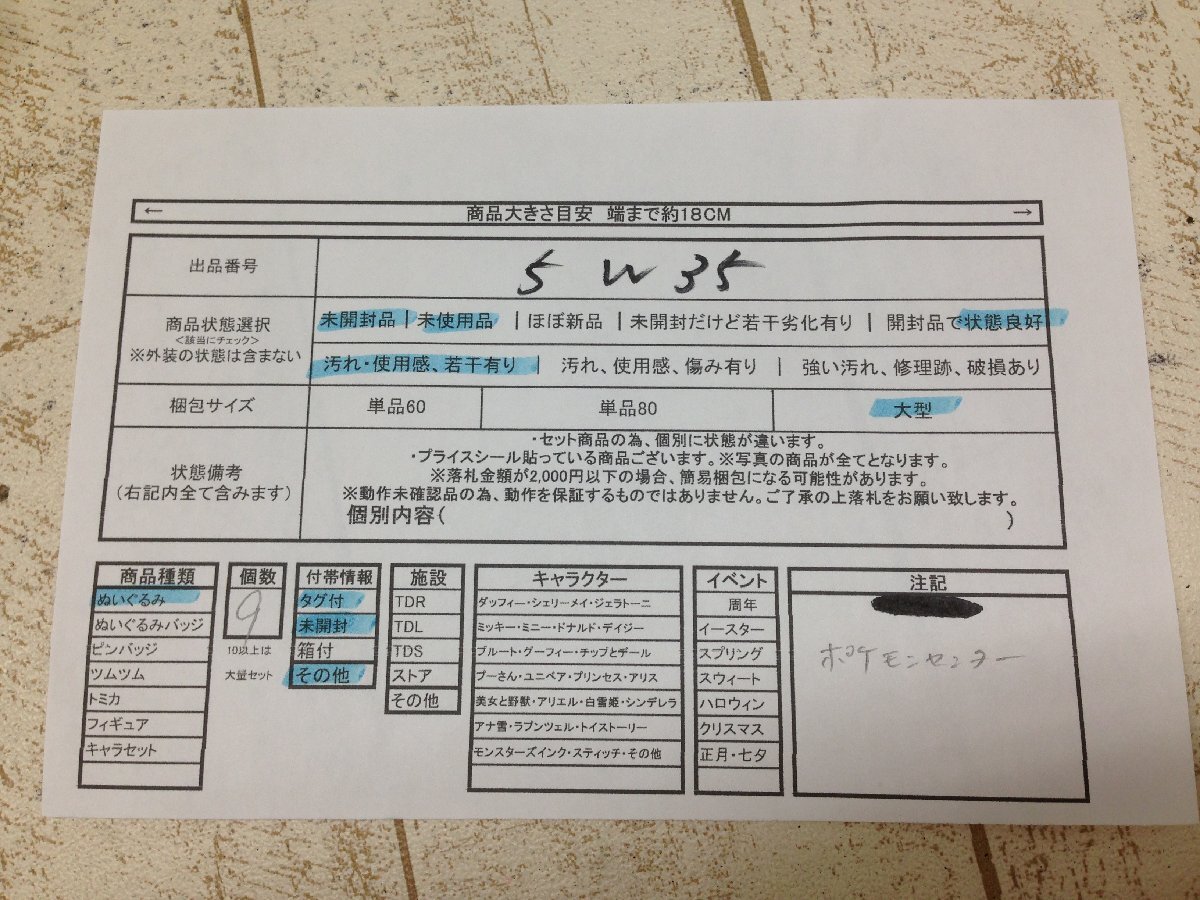 ← 商品大きさ目安 端まで約18CM →
出品番号 5 W 35
商品状態選択
<該当にチェック>
※外装の状態は含まない
未開封品 | 未使用品 | ほぼ新品 | 未開封だけど若干劣化有り | 開封品で状態良好
汚れ・使用感、若干有り | 汚れ、使用感、傷み有り | 強い汚れ、修理跡、破損あり
梱包サイズ 単品60 単品80 大型
状態備考
(右記内全て含みます)
・セット商品の為、個別に状態が違います。
・プライスシール貼っている商品ございます。※写真の商品が全てとなります。
※落札金額が2,000円以下の場合、簡易梱包になる可能性があります。
※動作未確認品の為、動作を保証するものではありません。ご了承の上落札をお願い致します。
個別内容( )
商品種類
ぬいぐるみ
ぬいぐるみバッジ
ピンバッジ
ツムツム
トミカ
フィギュア
キャラセット
個数
9
10以上は
大量セット
付帯情報
タグ付
未開封
箱付
その他
施設
TDR
TDL
TDS
ストア
その他
キャラクター
ダッフィー・シェリーメイ・ジェラトーニ
ミッキー・ミニー・ドナルド・デイジー
プルート・グーフィー・チップとデール
プーさん・ユニベア・プリンセス・アリス
美女と野獣・アリエル・白雪姫・シンデレラ
アナ雪・ラプンツェル・トイストーリー
モンスターズインク・スティッチ・その他
イベント
周年
イースター
スプリング
スウィート
ハロウィン
クリスマス
正月・七夕
注記
ポケモンセンター